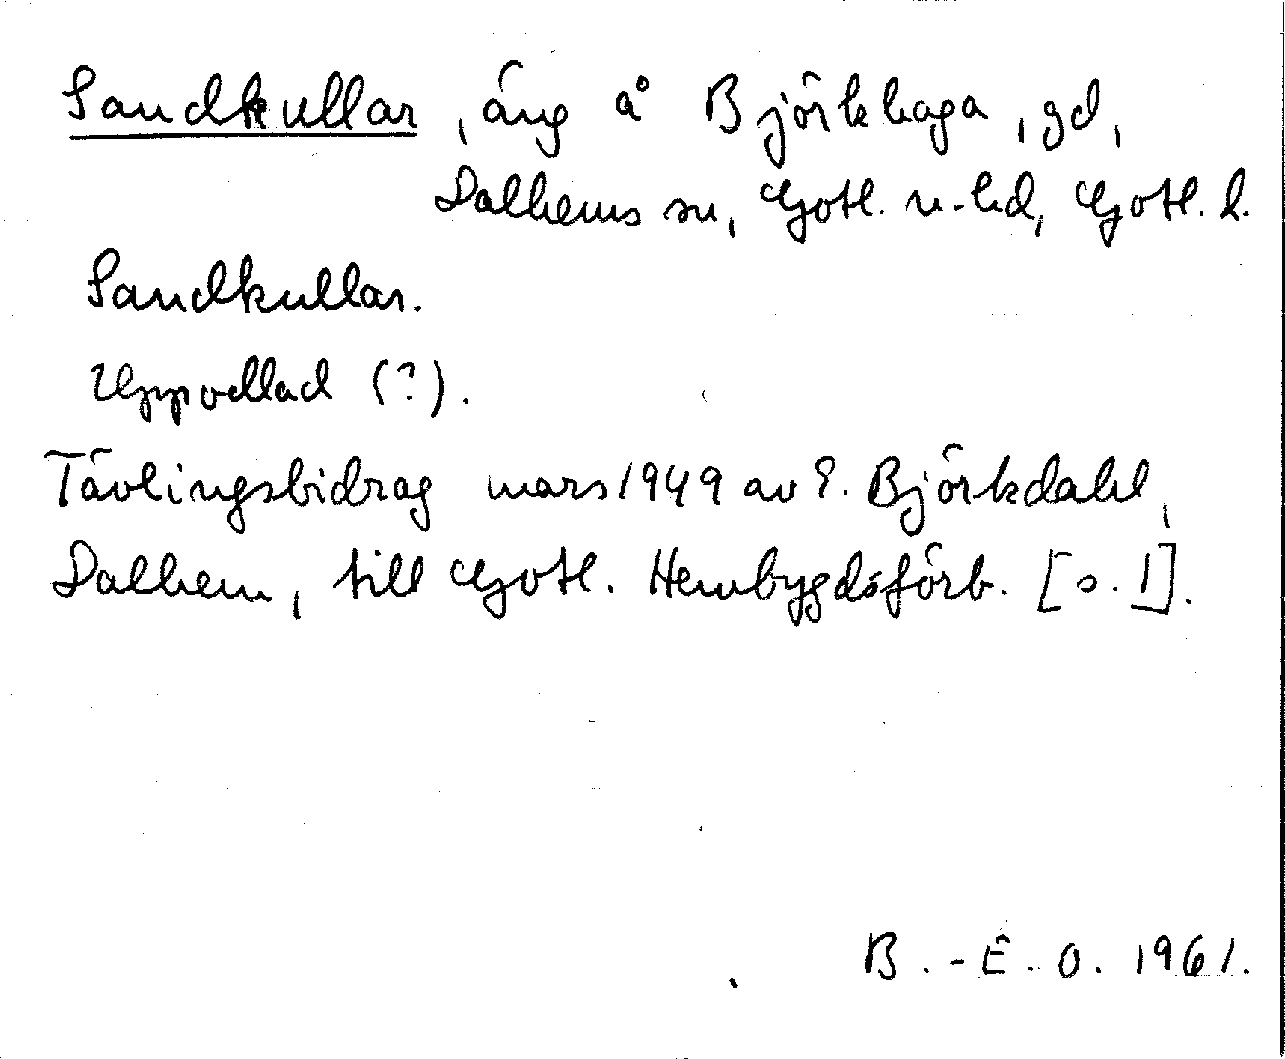 Sandkullar, äng å Björkhaga, gd,
Dalhems sn, Gotl. n. hd, Gotl. l.
Sandkullar.
Uppodlad (?).
Tävlingsbidrag mars 1949 av E. Björkdahl,
Dalhem, till Gotl. Hembygdsförb. [s. 1].
B.-E. O. 1961.